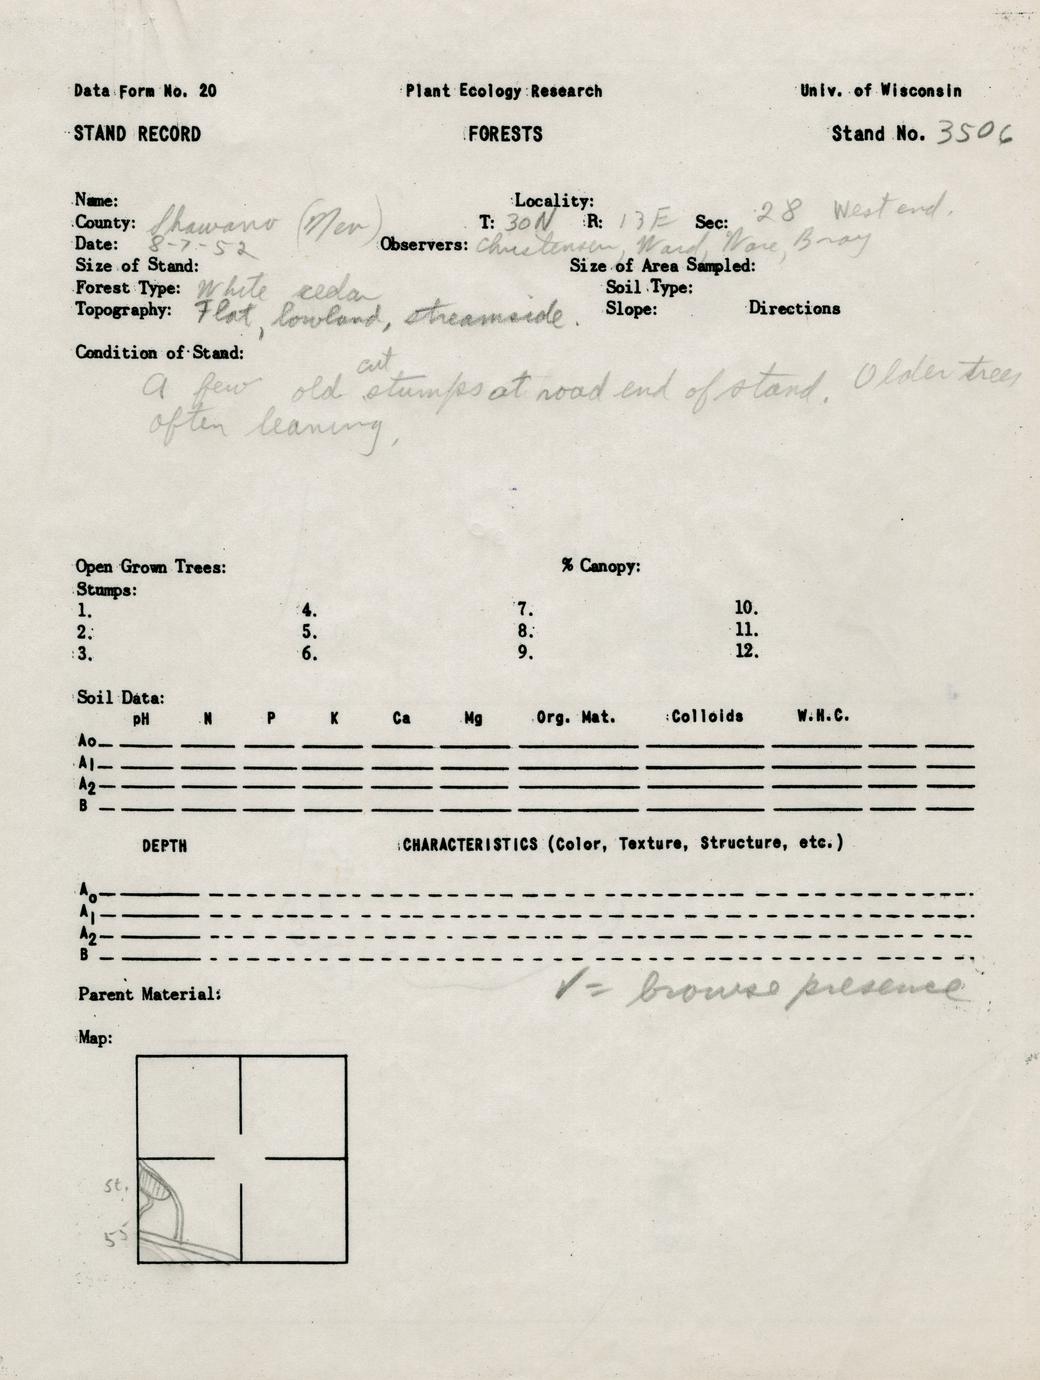 Data Form No. 20 Plant Ecology Research Univ. of Wisconsin
STAND RECORD FORESTS Stand No. 3506
Name: Locality:
County: Shawano (Men) T: 30N R: 13E Sec: 28 West end.
Date: 8-7-52 Observers: Christensen, Ward, Ware, Bray
Size of Stand: Size of Area Sampled:
Forest Type: White cedar Soil Type:
Topography: Flat, lowland, streamside. Slope: Directions
Condition of Stand:
cut
A few old stumps at road end of stand. Older trees
often leaning.
Open Grown Trees: % Canopy:
Stumps:
1. 4. 7. 10.
2. 5. 8. 11.
3. 6. 9. 12.
Soil Data:
pH N P K Ca Mg Org. Mat. Colloids W.H.C.
Ao
A1
A2
B
DEPTH CHARACTERISTICS (Color, Texture, Structure, etc.)
Ao
A1
A2
B
Parent Material: ✓ = browse presence
Map:
st.
55